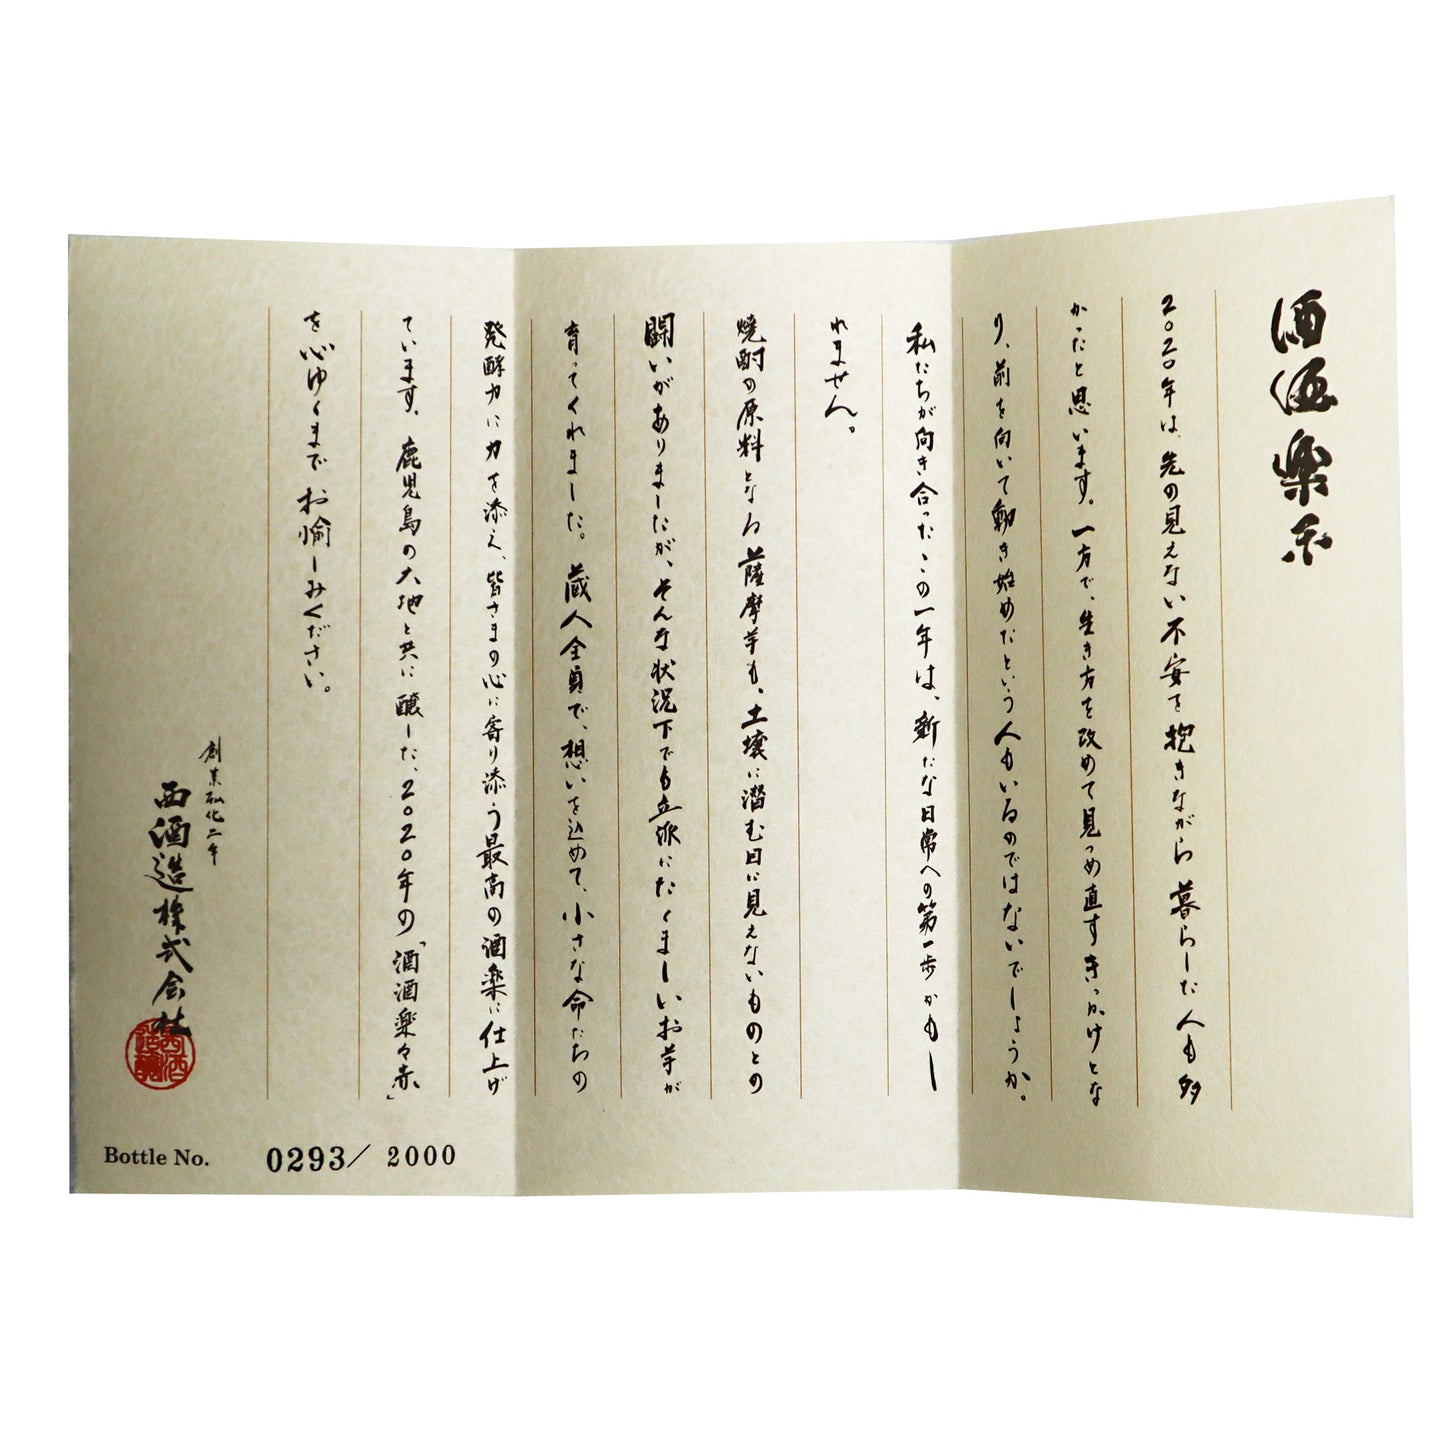 酒酒楽々
2020年は、先の見えない不安を抱きながら暮らした人も多
かったと思います。一方で、生き方を改めて見つめ直すきっかけとな
り、前を向いて動き始めたという人もいるのではないでしょうか。
私たちが向き合ったこの一年は、新たな日常への第一歩かもし
れません。
焼酎の原料となる薩摩芋も、土壌に潜む目に見えないものとの
闘いがありましたが、そんな状況下でも立派にたくましいお芋が
育ってくれました。蔵人全員で、想いを込めて、小さな命たちの
発酵力に力を添え、皆さまの心に寄り添う最高の酒楽に仕上げ
ています。鹿児島の大地と共に醸した、2020年の「酒酒楽々赤」
を心ゆくまでお愉しみください。
創業弘化二年
西酒造株式会社
Bottle No. 0293/2000